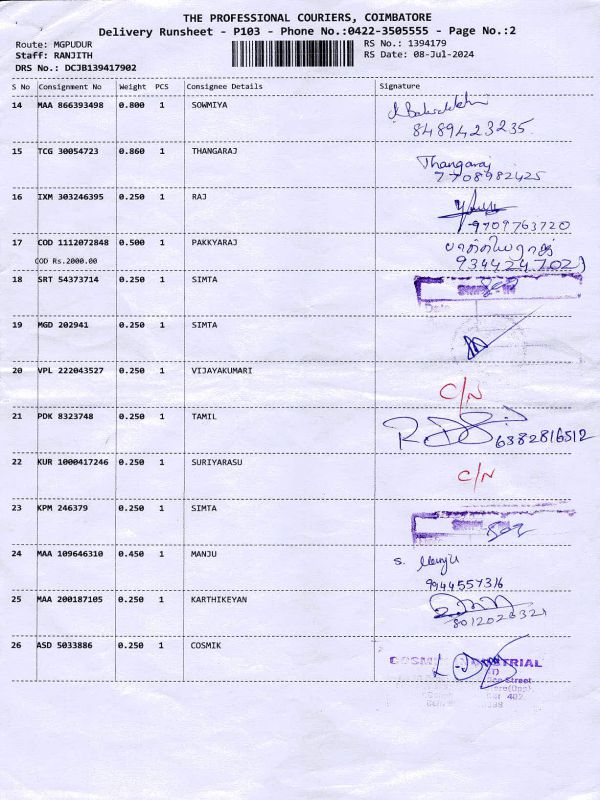 THE PROFESSIONAL COURIERS, COIMBATORE
Delivery Runsheet - P103 - Phone No.:0422-3505555 - Page No.:2
Route: MGPUDUR RS No.: 1394179
Staff: RANJITH RS Date: 08-Jul-2024
DRS No.: DCJB139417902
S No Consignment No Weight PCS Consignee Details Signature
14 MAA 866393498 0.800 1 SOWMIYA
8489423235
15 TCG 30054723 0.860 1 THANGARAJ Thangaraj
7708982425
16 IXM 303246395 0.250 1 RAJ
9709763720
17 COD 1112072848 0.500 1 PAKKYARAJ
COD Rs.2000.00 9344247021
18 SRT 54373714 0.250 1 SIMTA
19 MGD 202941 0.250 1 SIMTA
20 VPL 222043527 0.250 1 VIJAYAKUMARI
C/N
21 PDK 8323748 0.250 1 TAMIL
6382816512
22 KUR 1000417246 0.250 1 SURIYARASU
C/N
23 KPM 246379 0.250 1 SIMTA
24 MAA 109646310 0.450 1 MANJU S. Manju
9944557316
25 MAA 200187105 0.250 1 KARTHIKEYAN
8012026321
26 ASD 5033886 0.250 1 COSMIK